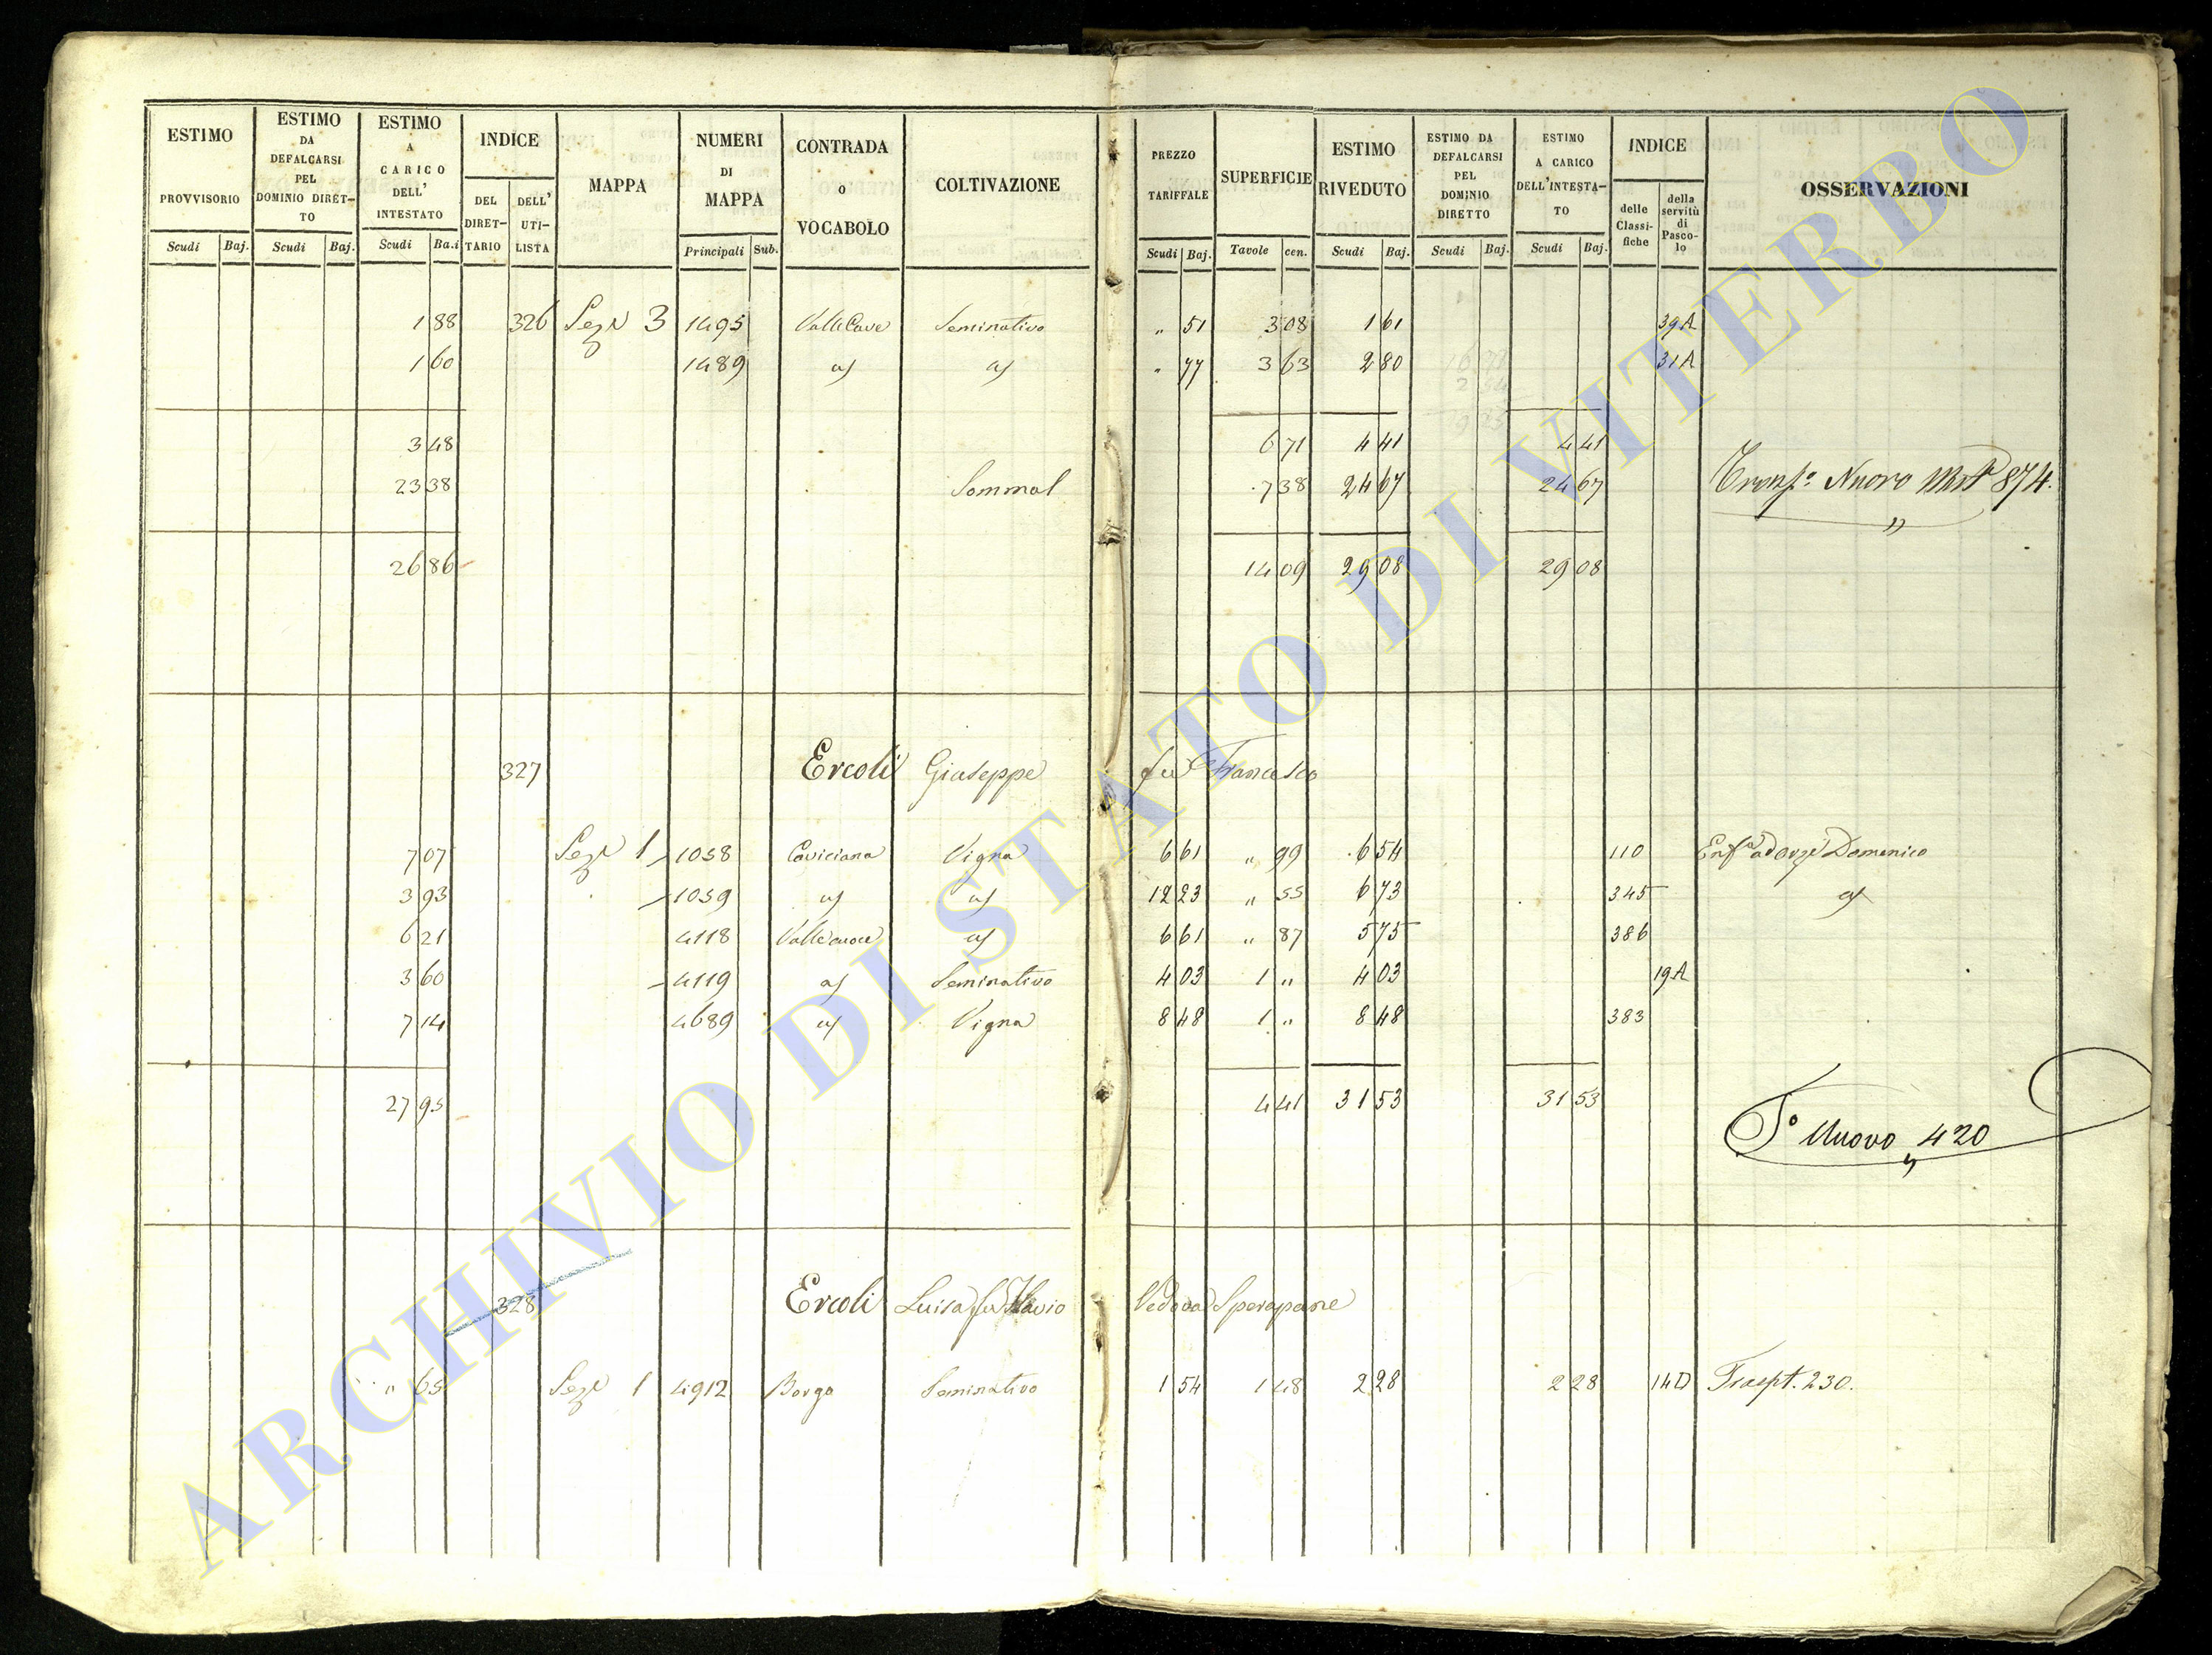 ESTIMO PROVVISORIO Scudi Baj.
ESTIMO DA DEFALCARSI PEL DOMINIO DIRET-TO Scudi Baj.
ESTIMO A CARICO DELL' INTESTATO Scudi Ba.i
INDICE DEL DIRET-TARIO DELL' UTI-LISTA
MAPPA
NUMERI DI MAPPA Principali Sub.
CONTRADA o VOCABOLO
COLTIVAZIONE
PREZZO TARIFFALE Scudi Baj.
SUPERFICIE Tavole cen.
ESTIMO RIVEDUTO Scudi Baj.
ESTIMO DA DEFALCARSI PEL DOMINIO DIRETTO Scudi Baj.
ESTIMO A CARICO DELL'INTESTA-TO Scudi Baj.
INDICE delle Classi-fiche della servitù di Pasco-lo
OSSERVAZIONI
1 88 326 Sez. 3 1495 Valle Cave Seminativo " 51 3 08 1 61 39A
1 60 1489 " 77 3 63 2 80 31A
3 48 6 71 4 41 4 41
23 38 Sommal 7 38 24 67 24 67 Nuovo 874.
26 86 14 09 29 08 29 08
327 Ercoli Giuseppe fu Francesco
7 07 Sez. 1 1058 Caviciana Vigna 6 61 " 99 6 54 110 Domenico
3 93 1059 12 23 " 55 6 73 345
6 21 4118 6 61 " 87 5 75 386
3 60 4119 Seminativo 4 03 1 " 4 03 19A
7 14 4689 Vigna 8 48 1 " 8 48 383
27 95 4 41 31 53 31 53
To Nuovo 420
328 Ercoli Luisa fu Flavio Vedova Sperapane
" 65 Sez. 1 4912 Borgo Seminativo 1 54 1 48 2 28 2 28 14D Traspt. 230.
ARCHIVIO DI STATO DI VITERBO